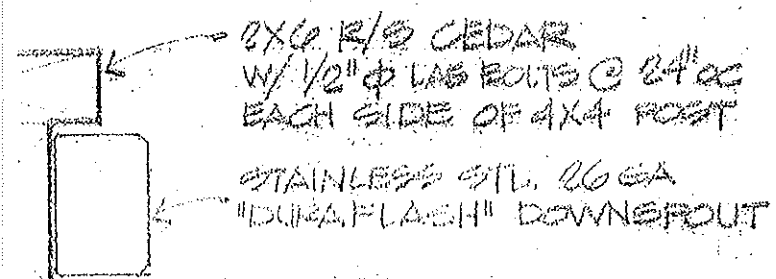 2X6 R/S CEDAR
W/ 1/2"⌀ LAG BOLTS @ 24"OC
EACH SIDE OF 4X4 POST
STAINLESS STL. 26 GA
"DURAFLASH" DOWNSPOUT